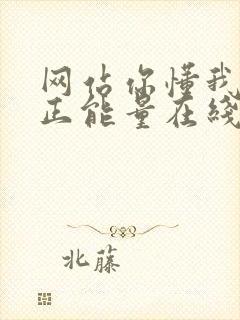 网佔你懂我
正能量在线
北藤